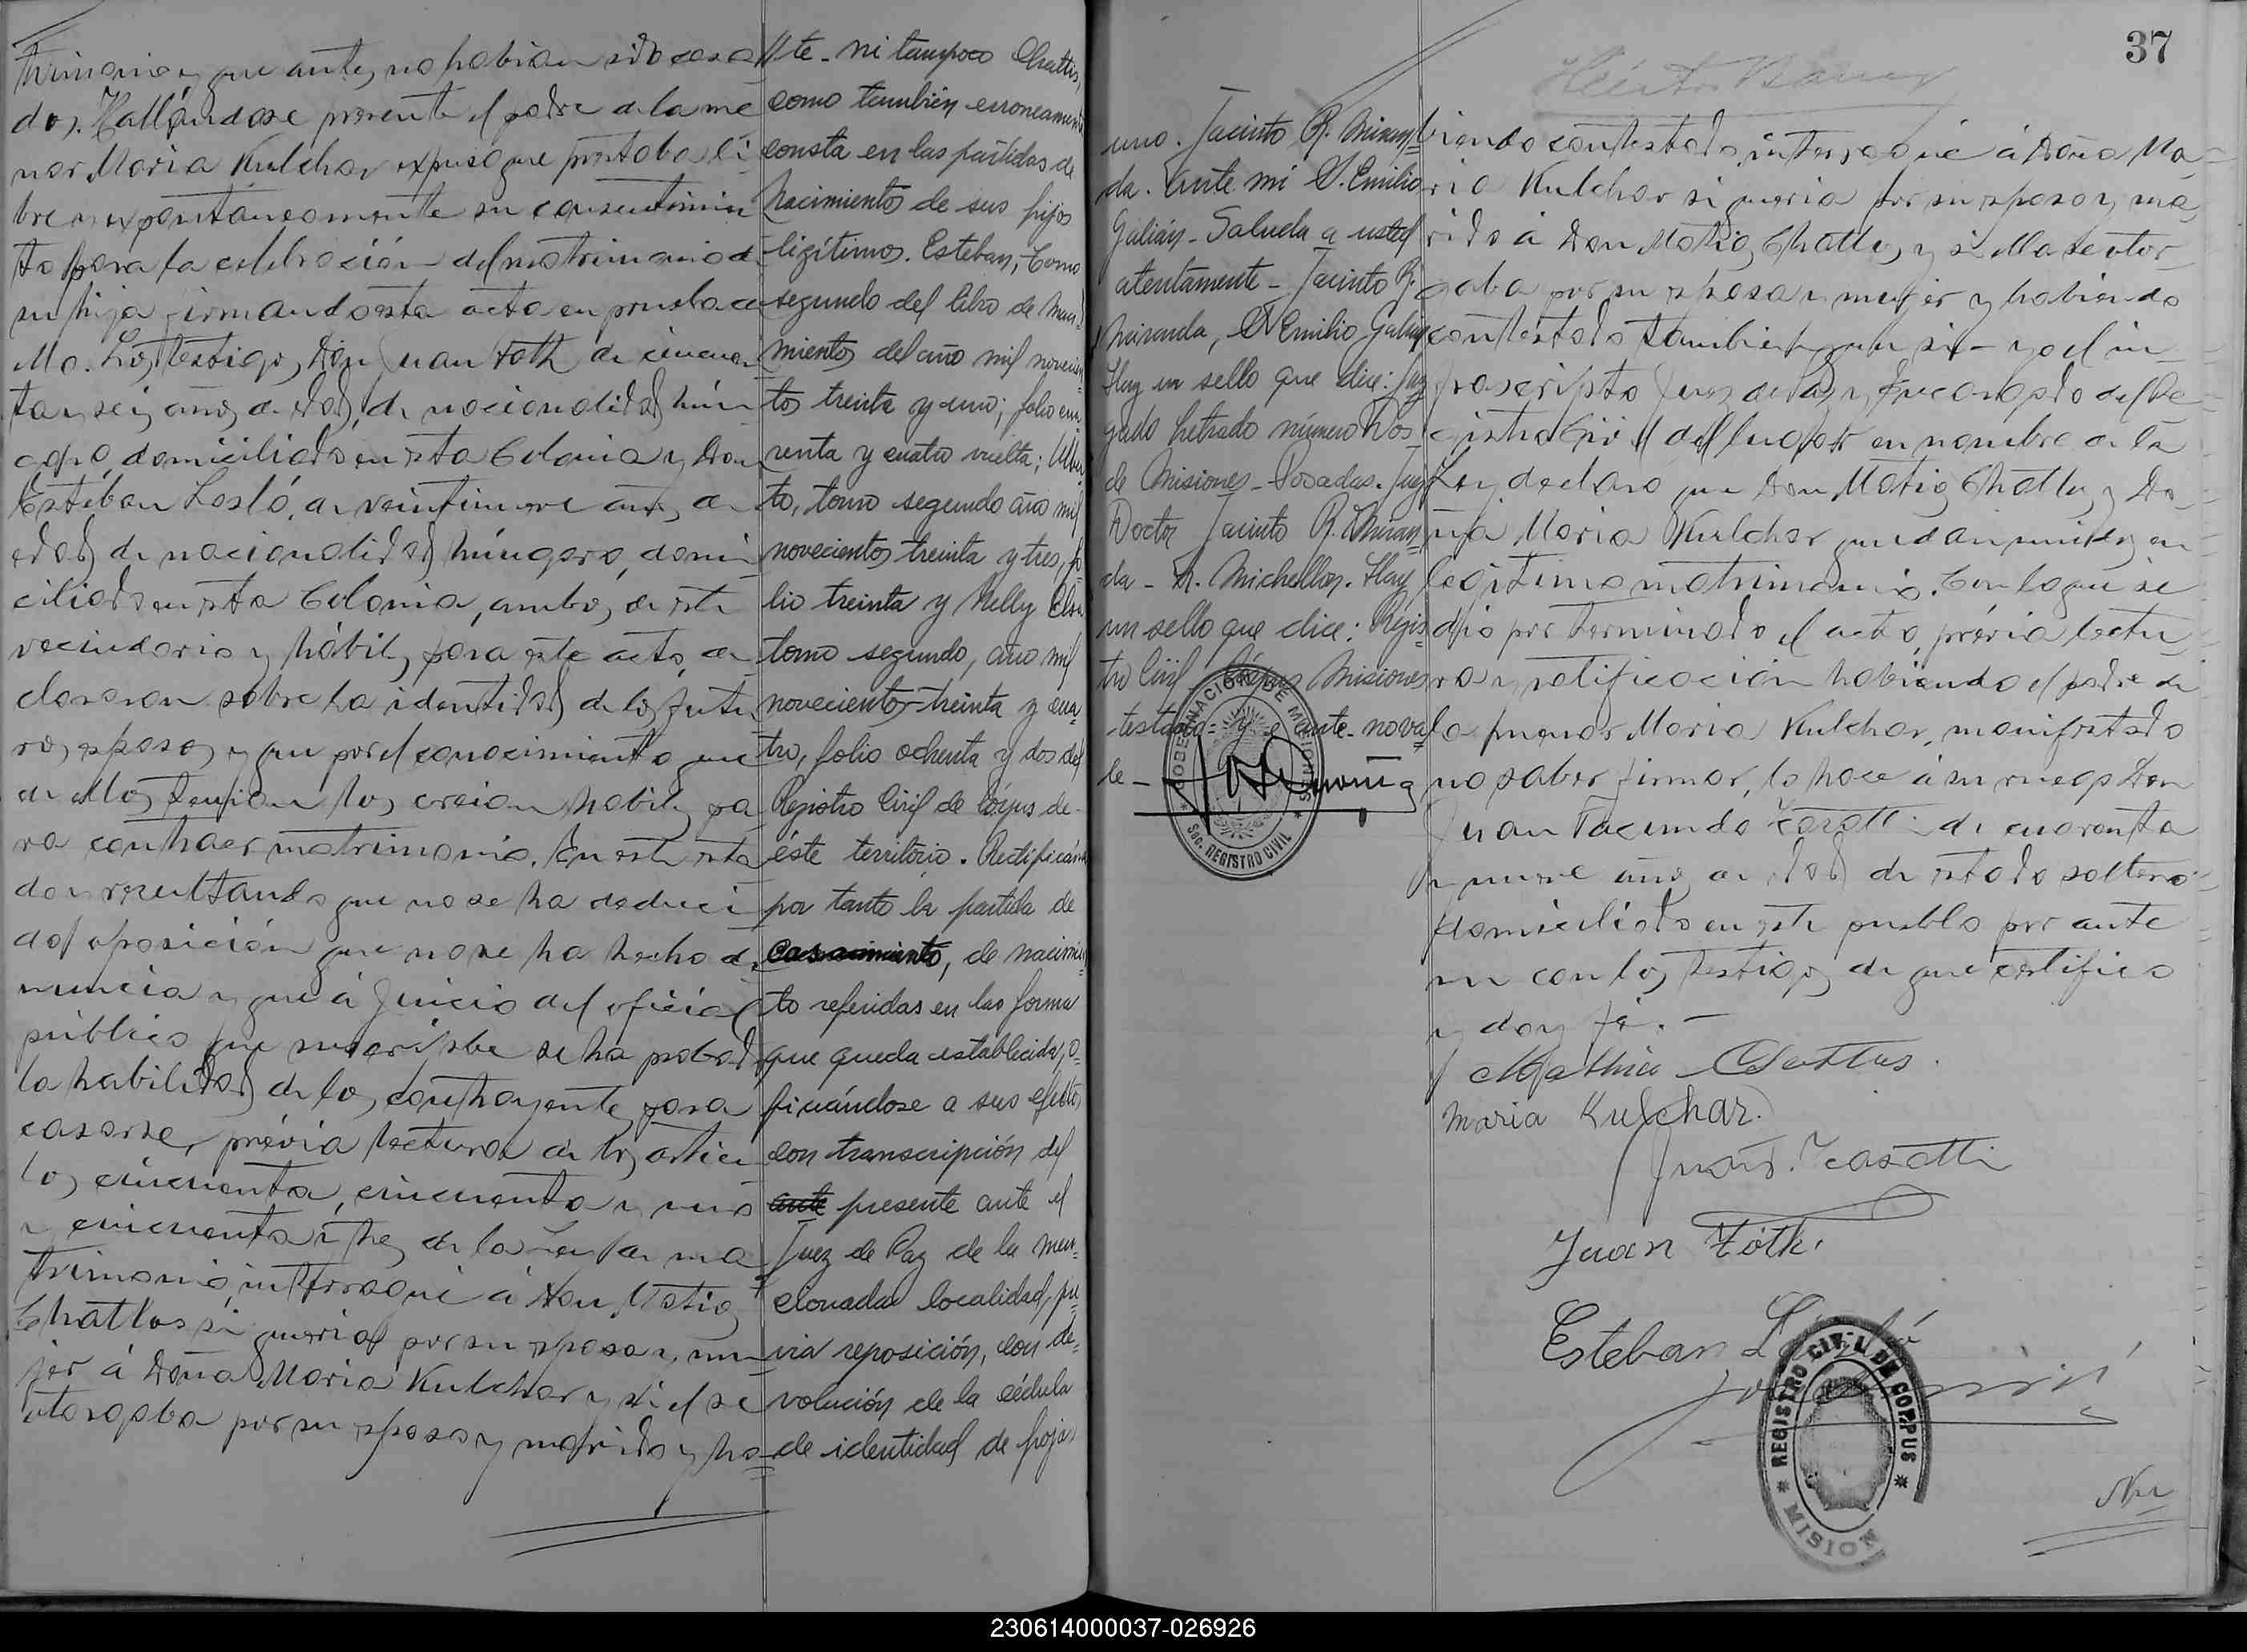 trimonio y que antes no habian sido casa
dos. Hallándose presente el padre de la me
nor Maria Kulchar expuso que prestaba li
bre y expontáneamente su consentimien
to para la celebración del matrimonio de
su hija firmando esta acta en prueba de
ello. Los testigos Don Juan Toth de cincuen
ta y seis años de edad, de nacionalidad hún
garo, domiciliado en esta Colonia y Don
Estéban Lasló, de veintinueve años de
edad de nacionalidad húngaro, domi
ciliado en esta Colonia, ambos de este
vecindario y hábiles para este acto, de
clararon sobre la identidad de los futu
ros esposos y que por el conocimiento que
de ellos tenian los creian habiles pa
ra contraer matrimonio. En este esta
do y resultando que no se ha deduci
do oposición que no se ha hecho de
nuncia y que á juicio del oficial
público que suscribe se ha probado
la habilidad de los contrayentes para
casarse, prévia lectura de los articu
los cincuenta, cincuenta y uno
y cincuenta y tres de la Ley de ma
trimonio, interrogué á Don Matias
Chattlos si queria por su esposa y mu
jer á Doña Maria Kulchar y si el se
otorgaba por su esposo y marido y ha
te - ni tampoco Chattis,
como también erroneamente
consta en las partidas de
nacimiento de sus hijos
legítimos. Esteban, tomo
segundo del libro de naci
mientos del año mil novecien
tos treinta y uno; folio cua
renta y cuatro vuelta; Alber
to, tomo segundo año mil
novecientos treinta y tres, fo
lio treinta y Nelly Elsa
tomo segundo, año mil
novecientos treinta y cua
tro, folio ochenta y dos del
Registro Civil de Córpus de
éste territorio. Rectificán
por tanto la partida de
casamiento, de nacimien
to referidas en las forma
que queda establecida, o=
ficiándose a sus efectos
con transcripción del
ante presente ante el
Juez de Paz de la men=
cionada localidad, pre
via reposición, con de=
volución de la cédula
de identidad de fojas
37
uno. Jacinto R. Miran=
da. Ante mi S. Emilio
Galián - Saluda a usted
atentamente - Jacinto R.
Miranda, S. Emilio Galian
Hay un sello que dice: Juz
gado Letrado número Dos
de Misiones - Posadas. Juez
Doctor Jacinto R. Miran
da - R. Michellon. Hay
un sello que dice: Regis
tro Civil - Córpus Misiones
testado = y = ante - no va=
le -
GOBERNACION DE MISIONES
Sec. REGISTRO CIVIL
biendo contestado, interrogué á Doña Ma=
ria Kulchar si queria por su esposo y ma
rido á Don Matias Chattlos y si ella se otor
gaba por su esposa y mujer y habiendo
contestado tambien que si - yo el in
frascripto Juez de Paz y Encargado del Re
gistro Civil del lugar en nombre de la
Ley declaro que Don Matias Chattlos y Do
ña Maria Kulchar quedan unidos en
legítimo matrimonio. Con lo que se
dió por terminado el acto, prévia lectu
ra y ratificación habiendo el padre de
la menor Maria Kulchar, manifestado
no saber firmar, lo hace á su ruego Don
Juan Facundo Casatti de cuarenta
y nueve años de edad de estado soltero
domiciliado en este pueblo por ante
mi con los testigos de que certifico
y doy fé. -
Mathias Chattlos.
Maria Kulchar.
Juan F. Casatti
Juan Tóth.
Esteban László
REGISTRO CIVIL DE CORPUS
MISION
230614000037-026926